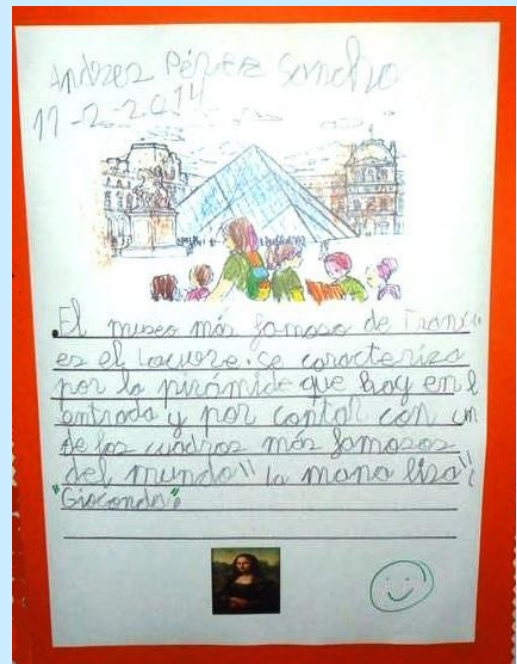 Andrés Pérez Sancho
11-2-2014
El museo más famoso de Franci
es el Louvre. Se caracteriza
por la pirámide que hay en l
entrada y por contar con un
de los cuadros más famosos
del mundo "la mona lisa"
"Gioconda".